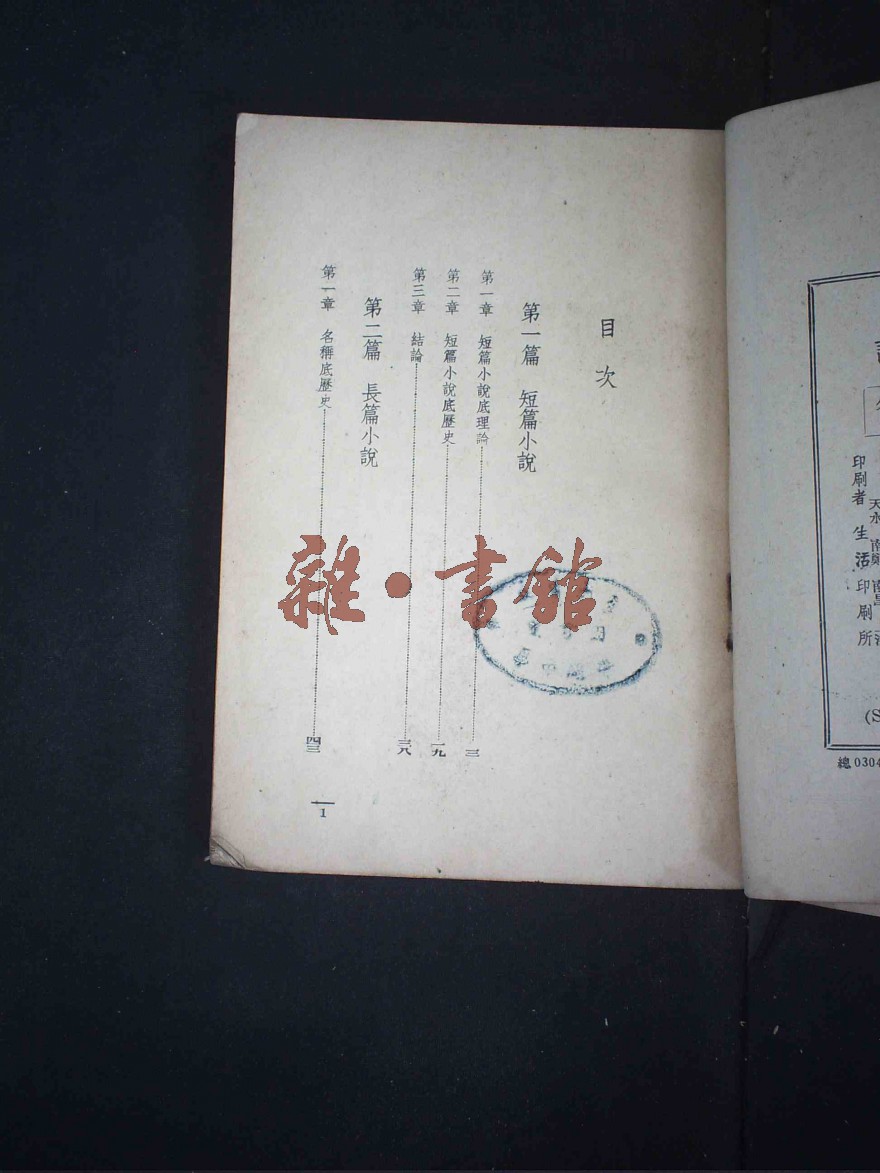 目次
第一篇 短篇小說
第一章 短篇小說底理論 三
第二章 短篇小說底歷史 一九
第三章 結論 三八
第二篇 長篇小說
第一章 名稱底歷史 四三
1
雜·書館
印刷者 生活印刷所
總0304